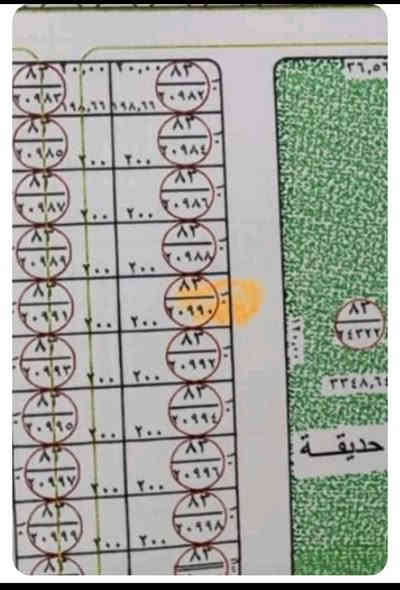 ٨٣ ٢٠,٠٠ ٢٠,٠٠ ٨٣
٢٠٩٨٢ ١٩٨,٦٦ ١٩٨,٦٦ ٢٠٩٨٣
٨٣ ٨٣
٢٠٩٨٤ ٢٠٠ ٢٠٠ ٢٠٩٨٥
٨٣ ٨٣
٢٠٩٨٦ ٢٠٠ ٢٠٠ ٢٠٩٨٧
٨٣ ٨٣
٢٠٩٨٨ ٢٠٠ ٢٠٠ ٢٠٩٨٩
٨٣ ٨٣
٢٠٩٩٠ ٢٠٠ ٢٠٠ ٢٠٩٩١
٨٣ ٨٣
٢٠٩٩٢ ٢٠٠ ٢٠٠ ٢٠٩٩٣
٨٣ ٨٣
٢٠٩٩٤ ٢٠٠ ٢٠٠ ٢٠٩٩٥
٨٣ ٨٣
٢٠٩٩٦ ٢٠٠ ٢٠٠ ٢٠٩٩٧
٨٣ ٨٣
٢٠٩٩٨ ٢٠٠ ٢٠٠ ٢٠٩٩٩
٨٣ ٨٣
٣٦,٥٦
٨٣
٢٤٣٢٢
٣٣٤٨,٦٤
حديقـــة